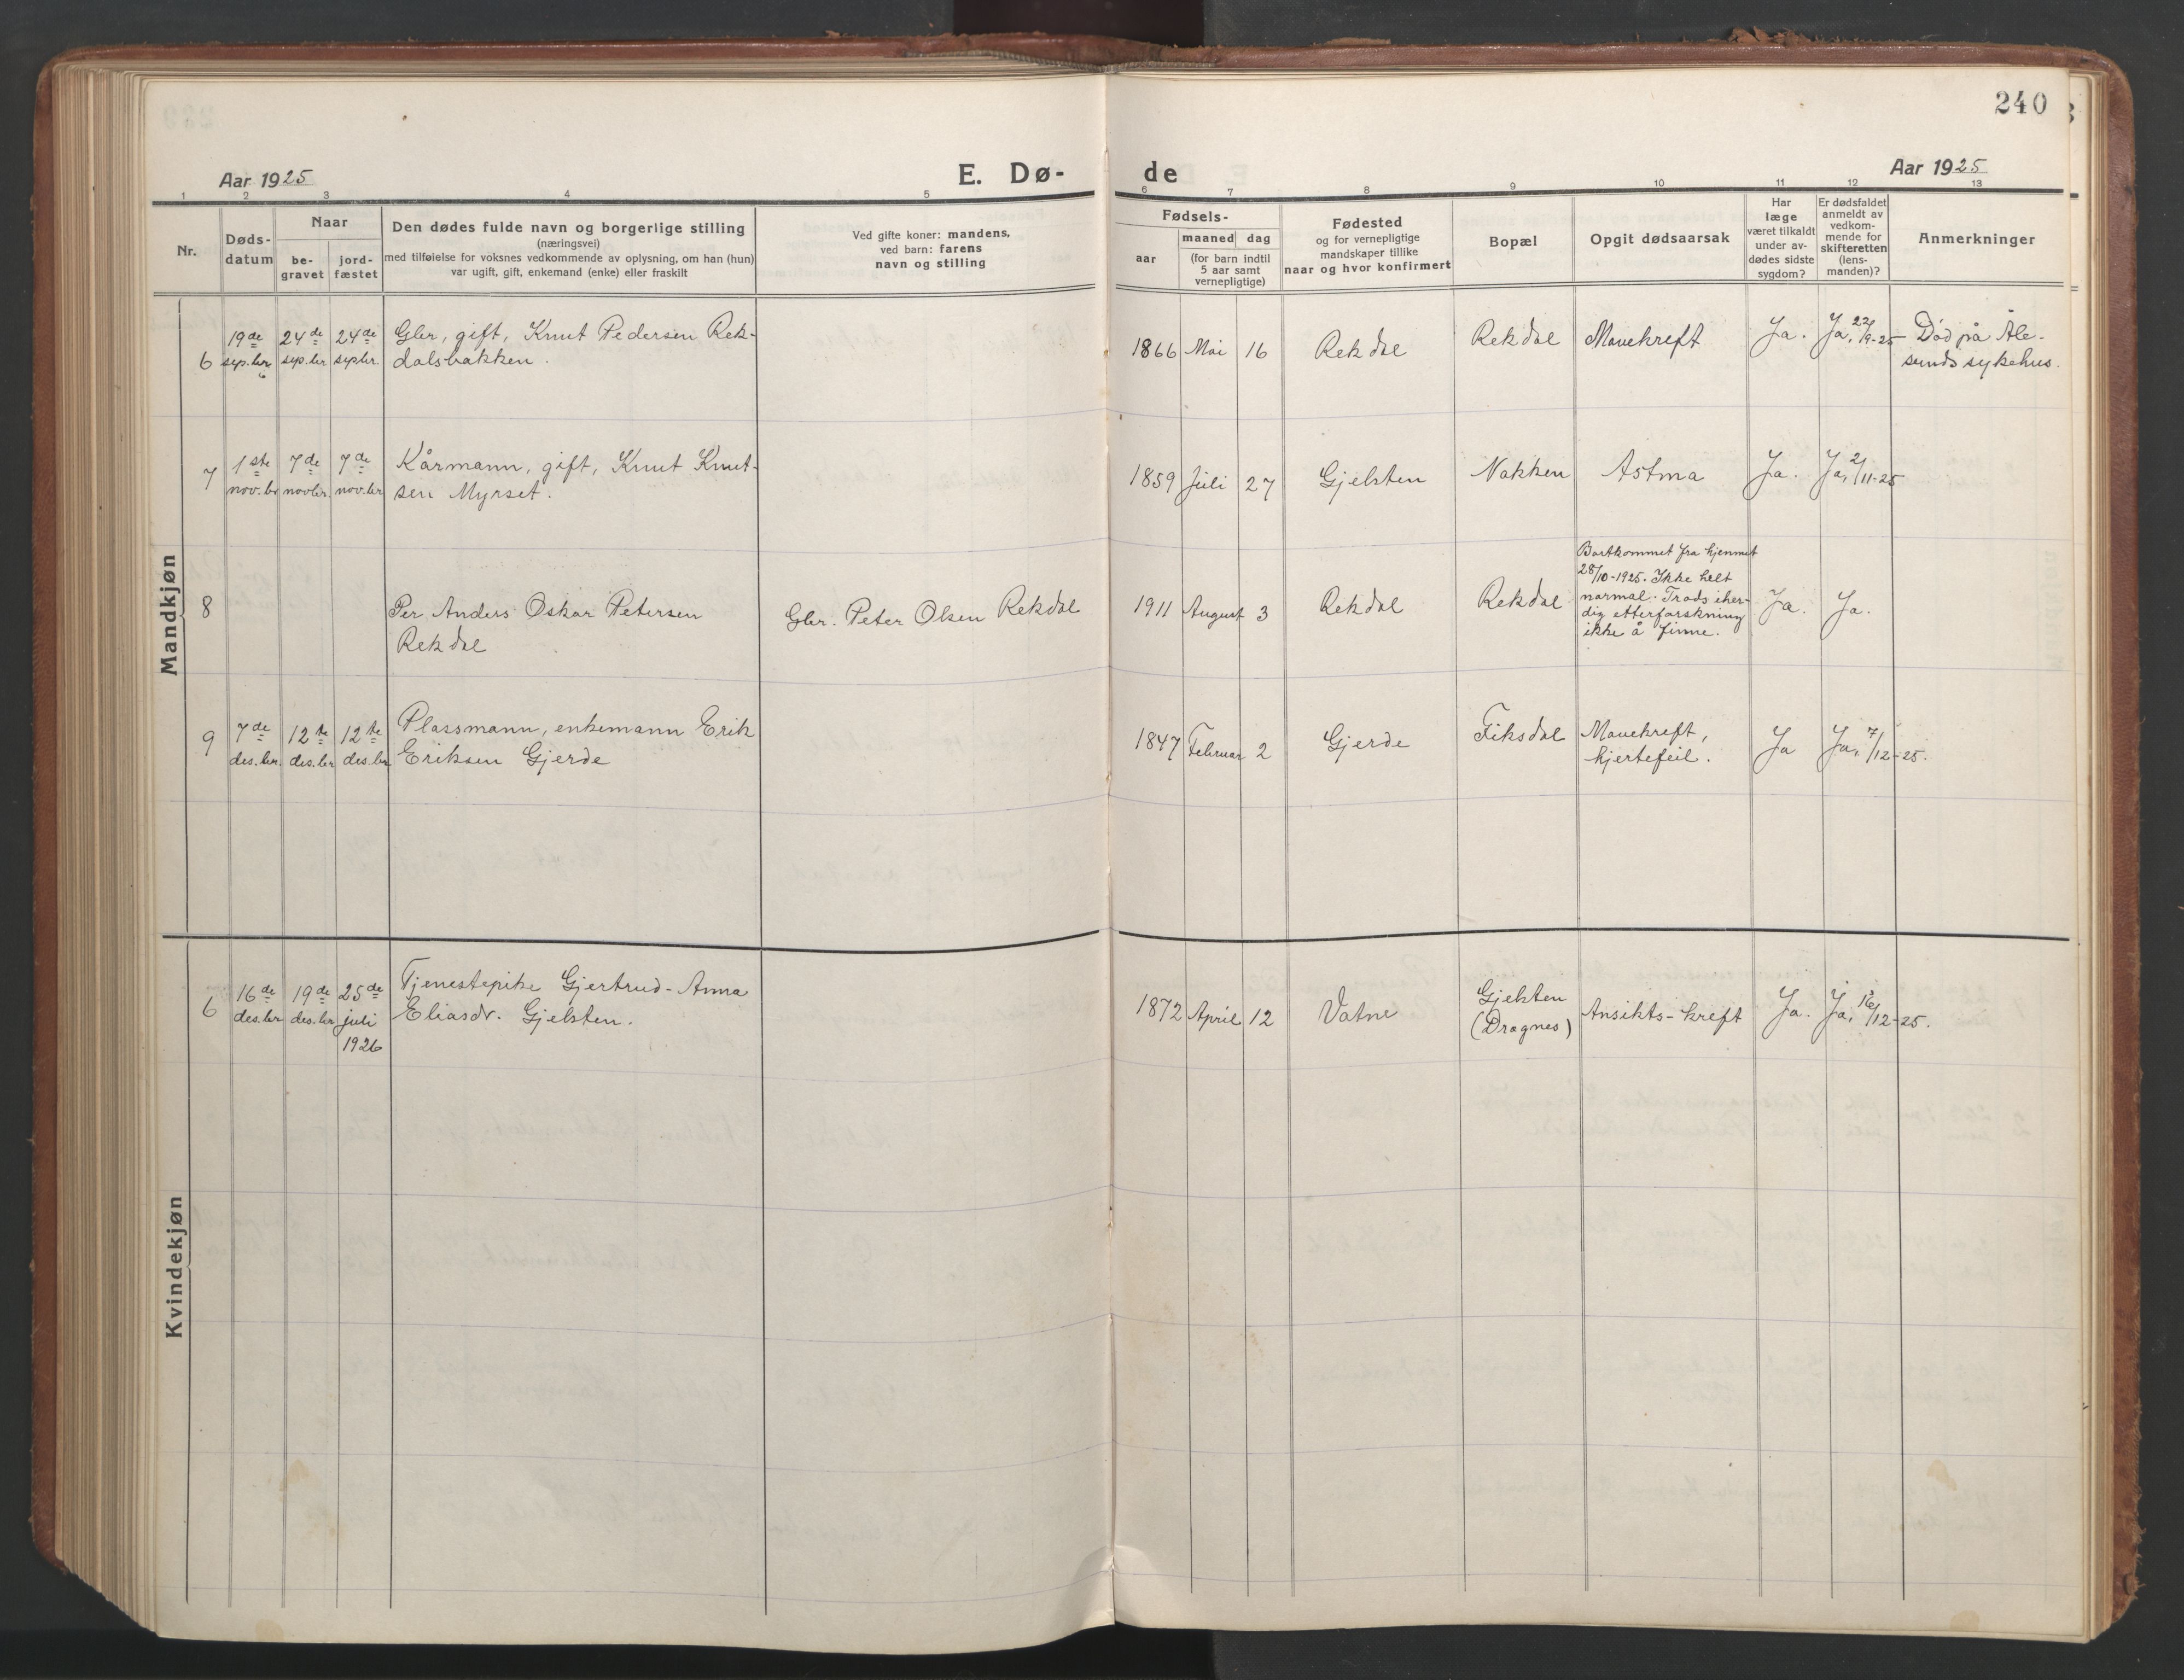 240
Aar 1925
E. Dø-
de
Aar 1925
1 2 3 4 5 6 7 8 9 10 11 12 13
Nr.
Døds-
datum
Naar
be-
gravet
jord-
fæstet
Den dødes fulde navn og borgerlige stilling
(næringsvei)
med tilføielse for voksnes vedkommende av oplysning, om han (hun)
var ugift, gift, enkemand (enke) eller fraskilt
Ved gifte koner: mandens,
ved barn: farens
navn og stilling
Fødsels-
aar
maaned dag
(for barn indtil
5 aar samt
vernepligtige)
Fødested
og for vernepligtige
mandskaper tillike
naar og hvor konfirmert
Bopæl
Opgit dødsaarsak
Har
læge
været tilkaldt
under av-
dødes sidste
sygdom?
Er dødsfaldet
anmeldt av
vedkom-
mende for
skifteretten
(lens-
manden)?
Anmerkninger
Mandkjøn
6
19de
sep.br
24de
sep.br
24de
sepbr.
Gbr, gift, Knut Pedersen Rek-
dalsbakken.
1866 Mai 16
Rekdal
Rekdal
Mavekreft
Ja.
Ja, 22/9-25
Død på Åle-
sunds sykehus.
7
1ste
nov.br
7de
novbr.
7de
nov.br
Kårmann, gift, Knut Knut-
sen Myrset.
1859 Juli 27
Gjelsten
Nakken
Astma
Ja.
Ja, 2/11-25
8
Per Anders Oskar Petersen
Rekdal
Gbr. Peter Olsen Rekdal
1911 August 3
Rekdal
Rekdal
Bortkommet fra hjemmet
28/10-1925. Ikke helt
normal. Trods iher-
dig etterforskning
ikke å finne.
Ja.
Ja.
9
7de
des.br.
12te
des.br
12te
des.br
Plassmann, enkemann Erik
Eriksen Gjerde
1847 Februar 2
Gjerde
Fiksdal
Mavekreft,
hjertefeil.
Ja
Ja, 7/12-25.
Kvindekjøn
6
16de
des.br
19de
des.br
25de
juli
1926
Tjenestepike Gjertrud-Anna
Eliasdr. Gjelsten.
1872 April 12
Vatne
Gjelsten
(Dragnes)
Ansikts-kreft
Ja.
Ja, 16/12-25.